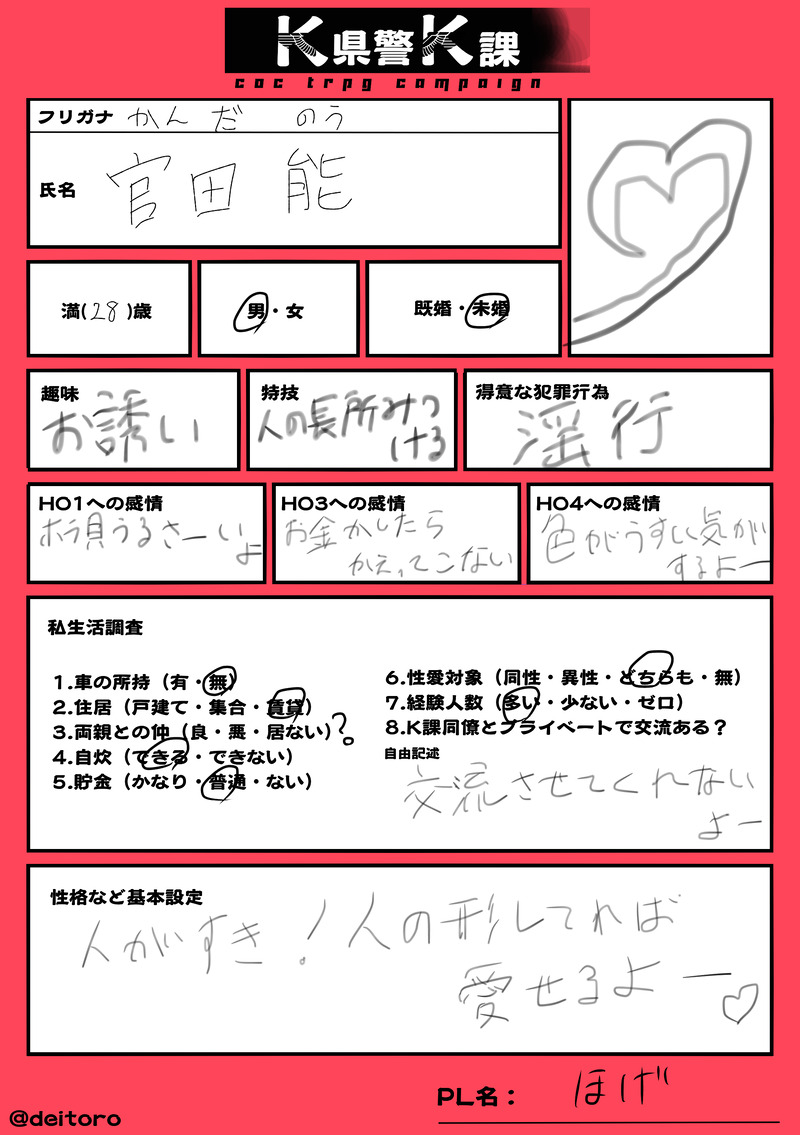 K県警K課
coc trpg campaign
フリガナ かんだ のう
氏名 官田 能
満(28)歳
男・女
既婚・未婚
趣味
お誘い
特技
人の長所みつ
ける
得意な犯罪行為
淫行
HO1への感情
ホラ貝うるさーい
よ
HO3への感情
お金かしたら
かえってこない
HO4への感情
色がうすい気が
するよー
私生活調査
1.車の所持（有・無）
2.住居（戸建て・集合・賃貸）
3.両親との仲（良・悪・居ない）?
4.自炊（できる・できない）
5.貯金（かなり・普通・ない）
6.性愛対象（同性・異性・どちらも・無）
7.経験人数（多い・少ない・ゼロ）
8.K課同僚とプライベートで交流ある？
自由記述
交流させてくれない
よー
性格など基本設定
人がすき!人の形してれば
愛せるよー♡
PL名： ほげ
@deitoro